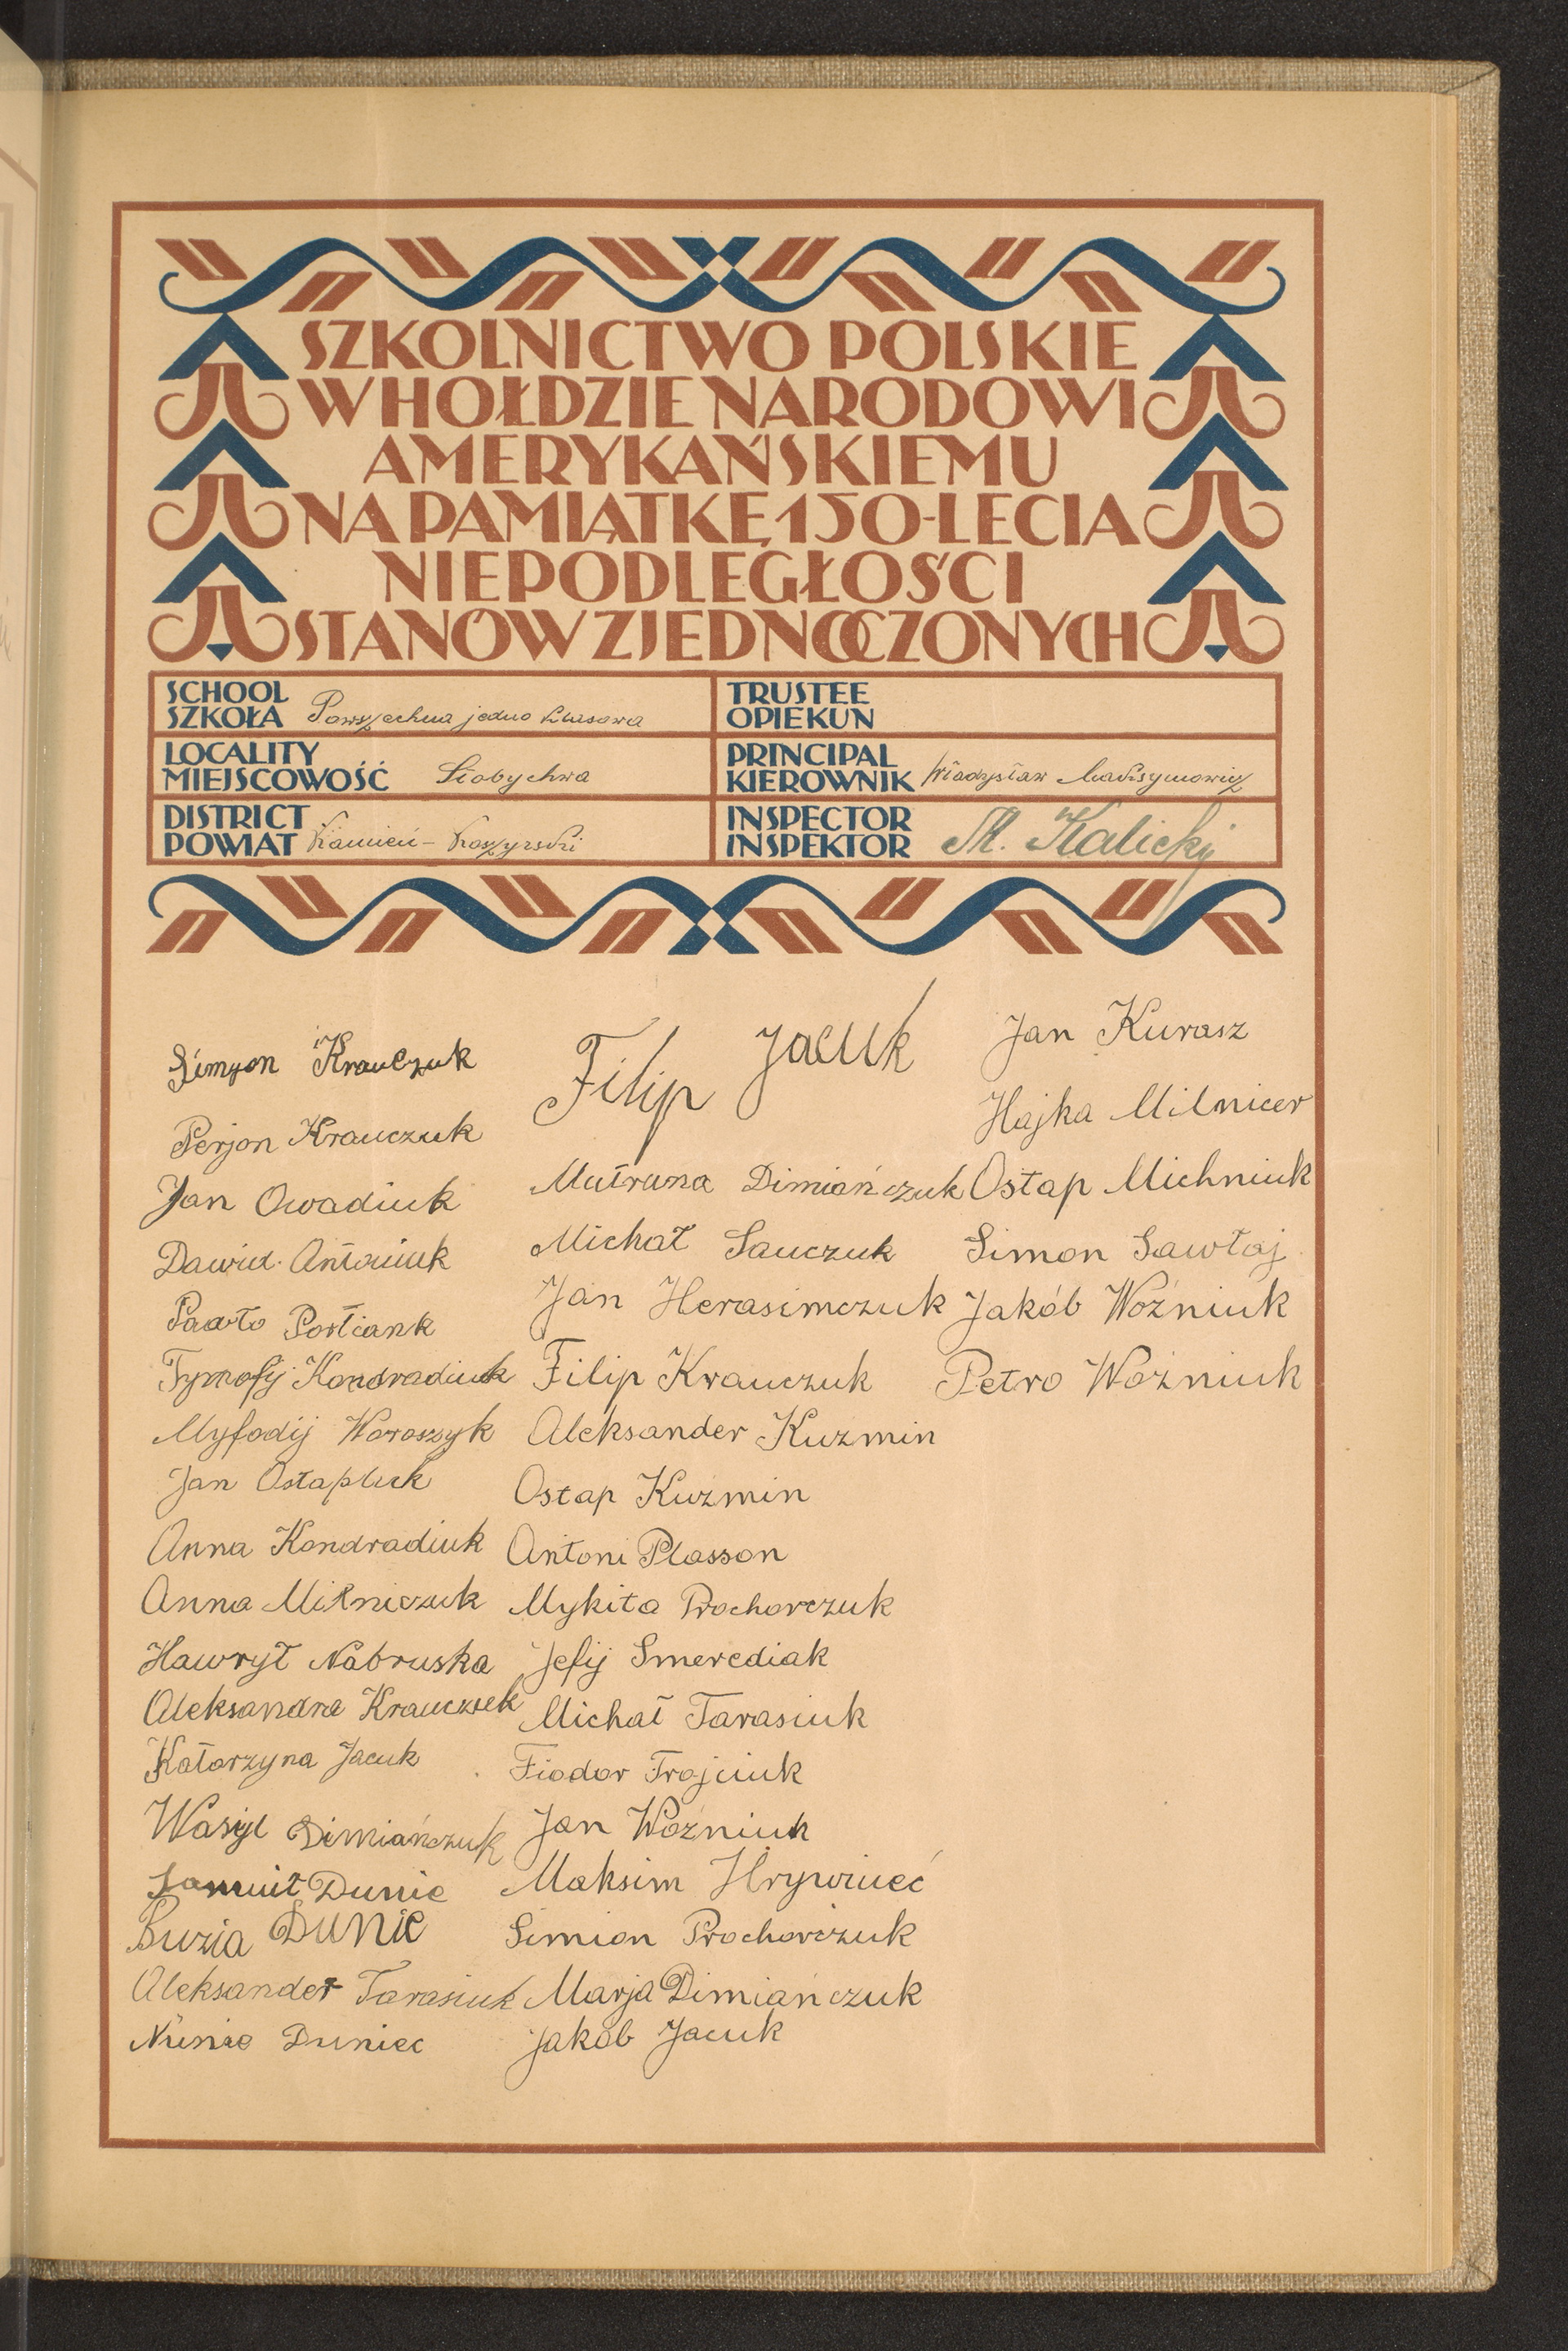 SZKOLNICTWO POLSKIE
W HOŁDZIE NARODOWI
AMERYKAŃSKIEMU
NA PAMIĄTKĘ 150-LECIA
NIEPODLEGŁOŚCI
STANÓW ZJEDNOCZONYCH
SCHOOL
SZKOŁA Powszechna jedno klasowa
LOCALITY
MIEJSCOWOŚĆ Stobychwa
DISTRICT
POWIAT Kamień-Koszyrski
TRUSTEE
OPIEKUN
PRINCIPAL
KIEROWNIK Władysław Maksymowicz
INSPECTOR
INSPEKTOR St. Kalicki
Simjon Krauczuk
Perjon Krauczuk
Jan Owadiuk
Dawid Antoniuk
Pawło
Tymofij Kondradiuk
Myfodij Woroszyk
Jan Ostapiuk
Anna Kondradiuk
Anna Mikniczuk
Hawrył Nabruska
Aleksandra Krauczuk
Katarzyna Jacuk
Wasyl Dimiańczuk
Samuił Dunie
Buzia Dunie
Aleksander Tarasiuk
Duniec
Filip Jacuk
Matruna Dimiańczuk
Michał Sauczuk
Jan Herasimczuk
Filip Krauczuk
Aleksander Kuzmin
Ostap Kuzmin
Antoni Plasson
Mykita Prochorczuk
Jefij Smerediak
Michał Tarasiuk
Fiodor Trojciuk
Jan Woźniuk
Maksim Hrywieeć
Simion Prochorczuk
Marja Dimiańczuk
Jakób Jacuk
Jan Kurasz
Hajka Milnicer
Ostap Michniuk
Simon Sawłaj
Jakób Woźniuk
Petro Woźniuk